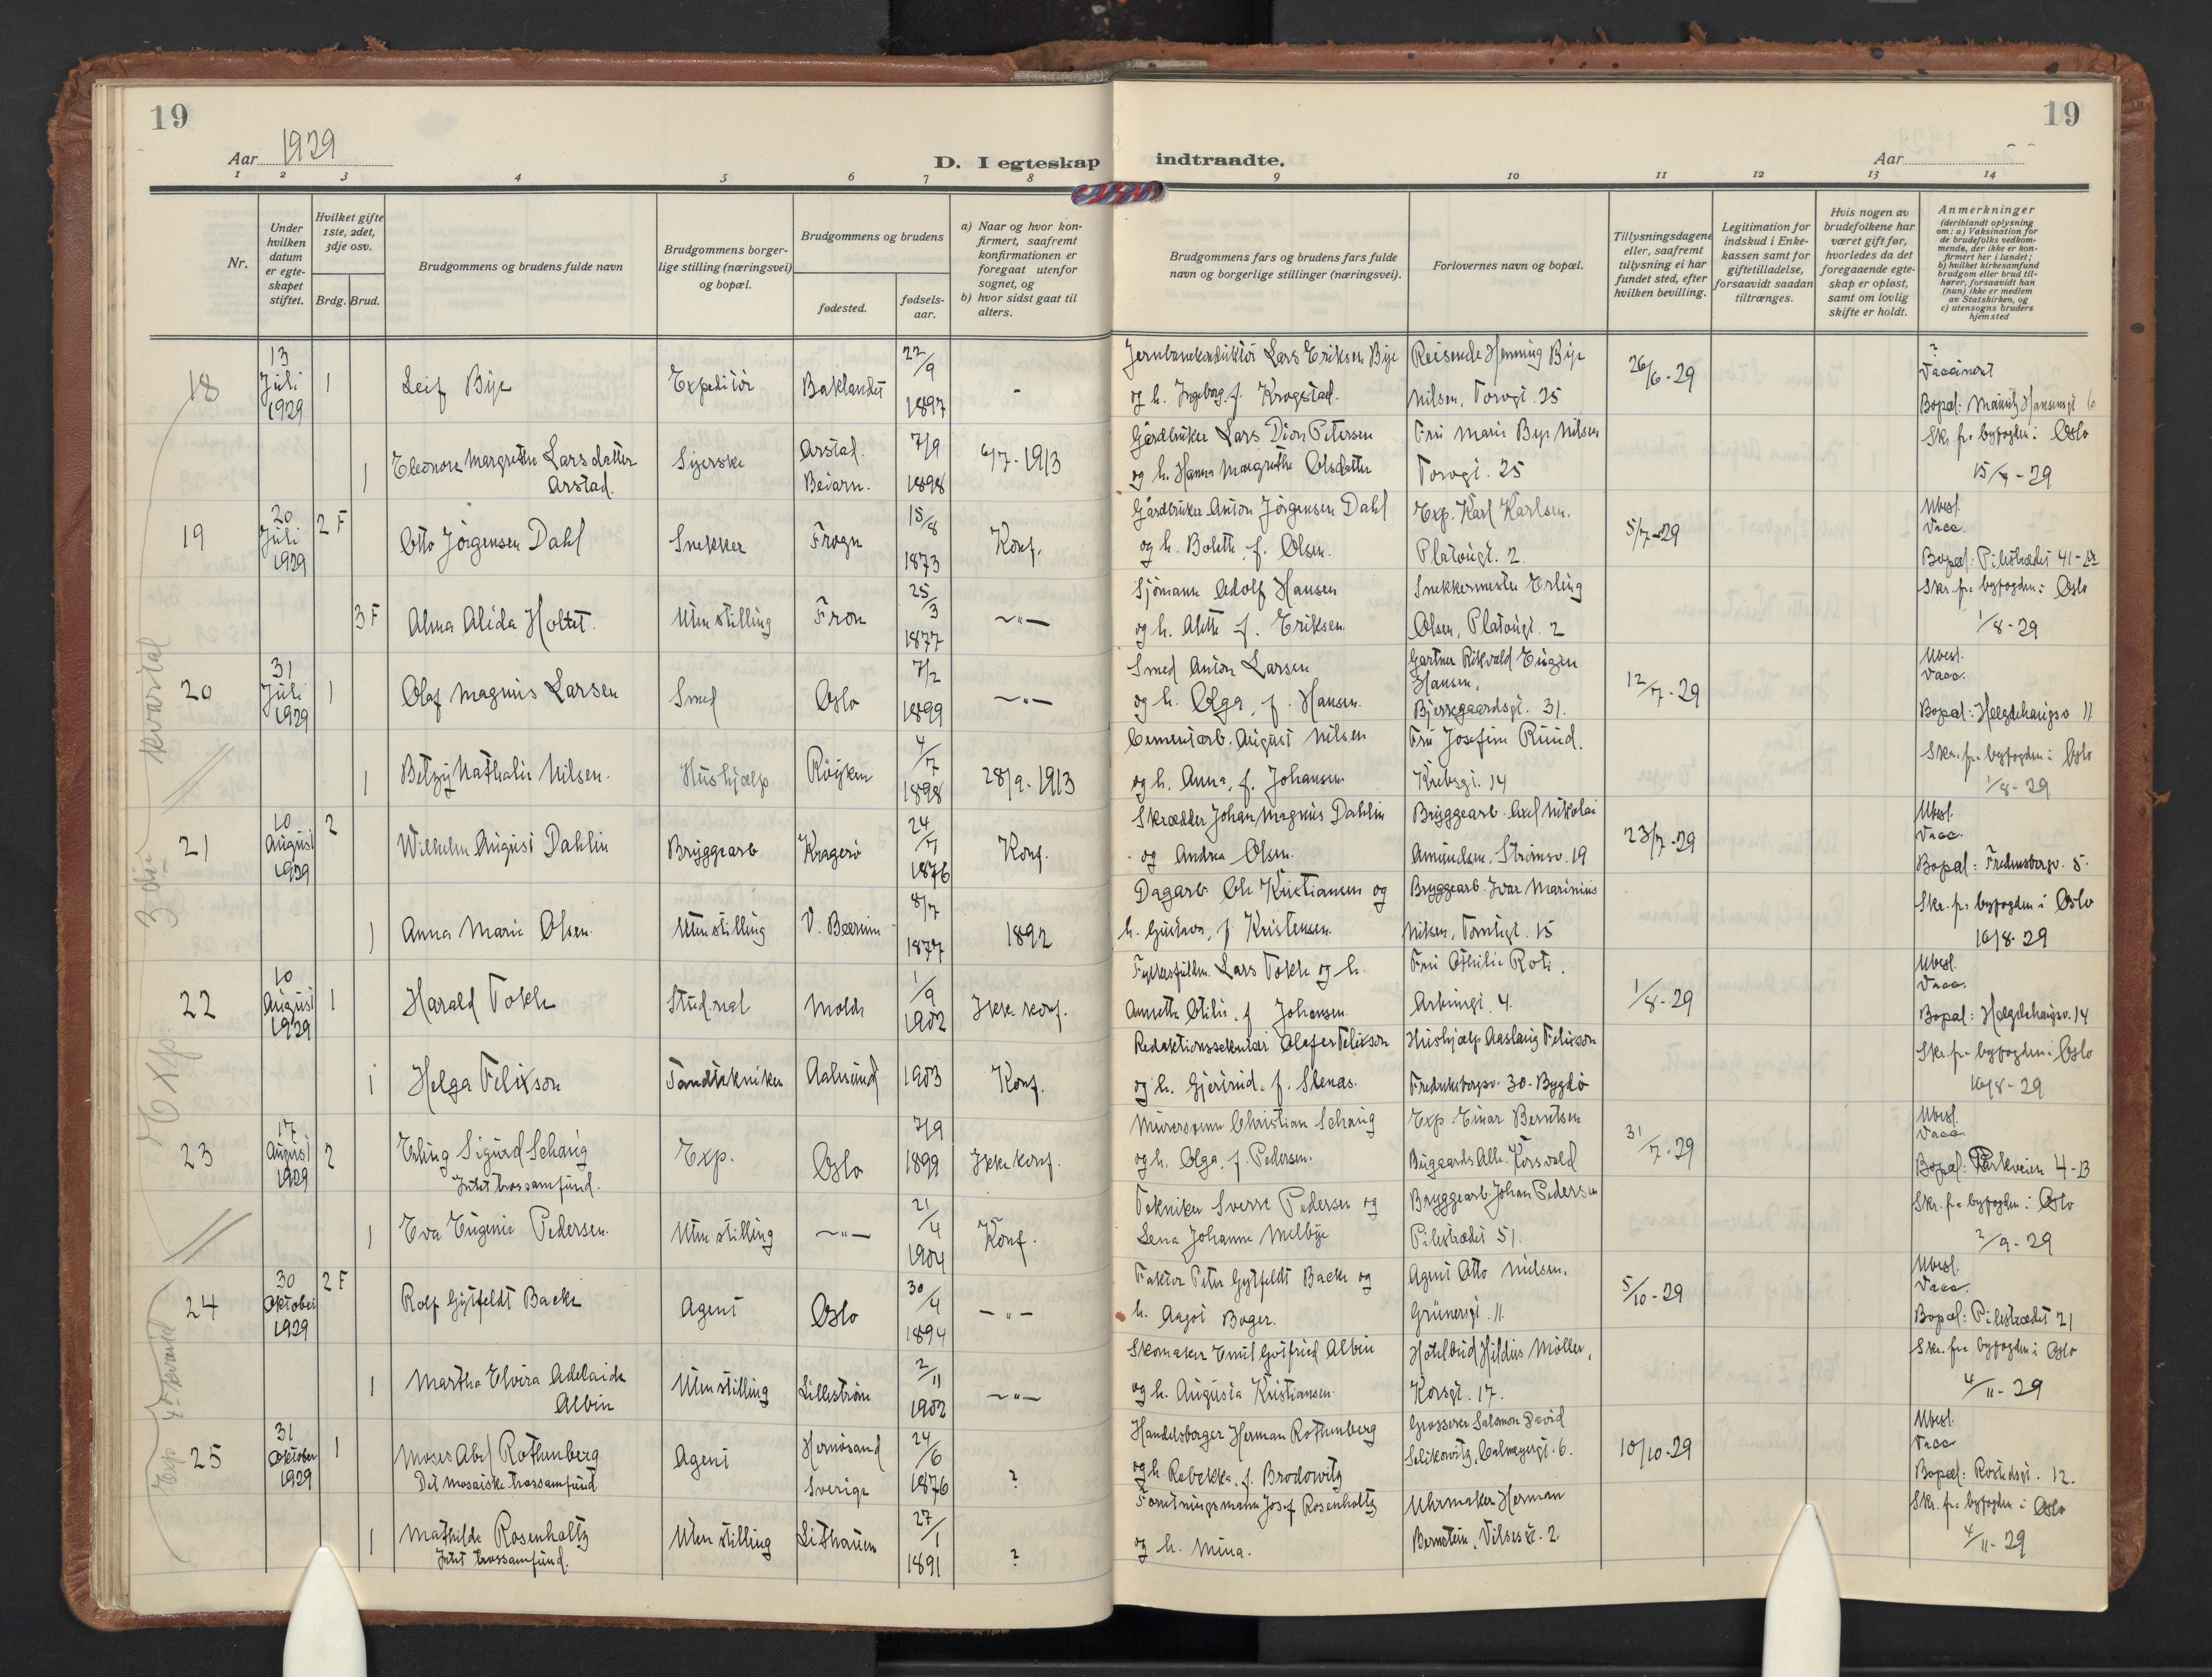 19
19
Aar 1929
D. I egteskap
indtraadte.
Aar
1 2 3 4 5 6 7 8 9 10 11 12 13 14
Nr.
Under hvilken datum er egteskapet stiftet.
Hvilket gifte 1ste, 2det, 3dje osv.
Brdg. Brud.
Brudgommens og brudens fulde navn
Brudgommens borgerlige stilling (næringsvei) og bopæl.
Brudgommens og brudens
fødested.
fødselsaar.
a) Naar og hvor konfirmert, saafremt konfirmationen er foregaat utenfor sognet, og
b) hvor sidst gaat til alters.
Brudgommens fars og brudens fars fulde navn og borgerlige stillinger (næringsvei).
Forlovernes navn og bopæl.
Tillysningsdagene eller, saafremt tillysning ei har fundet sted, efter hvilken bevilling.
Legitimation for indskud i Enkekassen samt for giftetilladelse, forsaavidt saadan tiltrænges.
Hvis nogen av brudefolkene har været gift før, hvorledes da det foregaaende egteskap er opløst, samt om lovlig skifte er holdt.
Anmerkninger
(deriblandt oplysning om: a) Vaksination for de brudefolks vedkommende, der ikke er konfirmert her i landet;
b) hvilket kirkesamfund brudgom eller brud tilhører, forsaavidt han (hun) ikke er medlem av Statskirken, og
c) utensogns bruders hjemsted
3die kvartal
Exp.
18 13 Juli 1929 1 Leif Bye Expeditör Baklandet 22/9 1897 - Jernbanekonduktör Lars Eriksen Bye og h. Ingeborg f. Krogstad. Reisende Henning Bye Nilsen, Torvgt. 25 26/6-29 ? Vaccinert Bopæl:
1 Eleonora Margrethe Larsdatter Arstad. Syerske Arstad. Beiarn. 7/9 1898 6/7-1913 Gårdbruker Lars Dion Petersen og h. Hanna Margrethe Olsdatter Fru Marie Bye Nilsen Torvgt. 25 Skr. fra byfogden i Oslo
19 20 Juli 1929 2 F Otto Jörgensen Dahl Snekker Frogn 15/8 1873 Konf. Gårdbruker Anton Jörgensen Dahl og h. Bolette, f. Olsen. Exp. Karl Karlsen. Platougt. 2. 5/7-29 Ubesl. Vacc. Bopæl: Pilestrædet 41-
3 F Alma Alida Holtet. Uten stilling Fron 25/3 1877 -"- Sjömann Adolf Hansen og h. Alette f. Eriksen. Snekkermester Erling Olsen, Platougt. 2 Skr. fra byfogden i Oslo 1/8-29
20 31 Juli 1929 1 Olaf Magnus Larsen Smed Oslo 7/2 1899 -"- Smed Anton Larsen og h. Olga, f. Hansen. Gartner Rikvald Eugen Hansen. Bjerregaardsgt. 31. 12/7-29 Ubesl. Vacc. Bopæl: Hægdehaugsv 11
1 Betzy Nathalie Nilsen. Hushjælp Röyken 4/7 1898 28/9-1913 Cementarb. August Nilsen og h. Anna, f. Johansen Fru Josefine Ruud. Krebsgt. 14 Skr. fra byfogden i Oslo 1/8-29
21 10 August 1929 2 Wilhelm August Dahlin Bryggearb Kragerö 24/7 1876 Konf. Skrædder Johan Magnus Dahlin og Andrea Olsen. Bryggearb. Axel Nikolai Amundsen, Strömsv. 19 23/7-29 Ubesl. Vacc. Bopæl: Fredensborgv. 5.
1 Anna Marie Olsen. Uten stilling V. Bærum 8/7 1877 1892 Dagarb. Ole Kristiansen og h. Gustava, f. Kristensen. Bryggearb. Ivar Marinius Nilsen, Tomtegt. 15 Skr. fra byfogden i Oslo 10/8-29
22 10 August 1929 1 Harald Tokle Stud. real Molde 1/9 1902 Ikke konf. Lars Tokle og h. Annette Otilie, f. Johansen. Fru Othilie Roti. Arbinsgt. 4. 1/8-29 Ubesl. Vacc. Bopæl: Hægdehaugsv. 14
1 Helga Felixson Tandtekniker Aalesund 1903 Konf. Redaktionssekretær Olafer Felixson og h. Gjertrud, f. Stenås. Hushjælp Aaslaug Felixson Fredriksborgsv. 30-Bygdö Skr. fra byfogden i Oslo 10/8-29
23 17 August 1929 2 Erling Sigurd Schaug Intet trossamfund. Exp. Oslo 7/9 1899 Ikke konf. Murersvenn Christian Schaug og h. Olga, f. Pedersen. Exp. Einar Berntsen 31/7-29 Ubesl. Vacc. Bopæl: Parkveien 4-B
1 Eva Eugenie Pedersen. Uten stilling -"- 21/4 1904 Konf. Tekniker Sverre Pedersen og Lena Johanne Melbye Bryggearb. Johan Pedersen Pilestrædet 51. Skr. fra byfogden i Oslo 2/9-29
Exp. 4. kvartal
24 30 Oktober 1929 2 F Rolf Gyldfeldt Backe Agent Oslo 30/4 1894 -"- Faktor Peter Gyldfeldt Backe og h. Aagot Boger. Agent Otto Nielsen. Grünersgt. 11. 5/10-29 Ubesl. Vacc. Bopæl: Pilestrædet 21
1 Martha Elvira Adelaide Albin Uten stilling Lilleström 2/11 1902 -"- Skomaker Emil Gotfried Albin og h. Augusta Kristiansen. Hotelbud Hildus Möller, Korsgt. 17. Skr. fra byfogden i Oslo 4/11-29
25 31 Oktober 1929 1 Moses Abel Rothenberg Det mosaiske trossamfund Agent Hernösand Sverige 24/6 1876 ? Handelsborger Herman Rothenberg og h. Rebekka, f. Brodowitz Grosserer Salomon David Selikowitz, Calmeyergt. 6. 10/10-29 Ubesl. Vacc Bopæl: Rostedsgt. 12.
1 Mathilde Rosenholtz Intet trossamfund. Uten stilling Lithauen 27/1 1891 ? Forretningsmann Josef Rosenholtz og h. Mina. Uhrmaker Herman Bernstein, 2. Skr. fra byfogden i Oslo 4/11-29